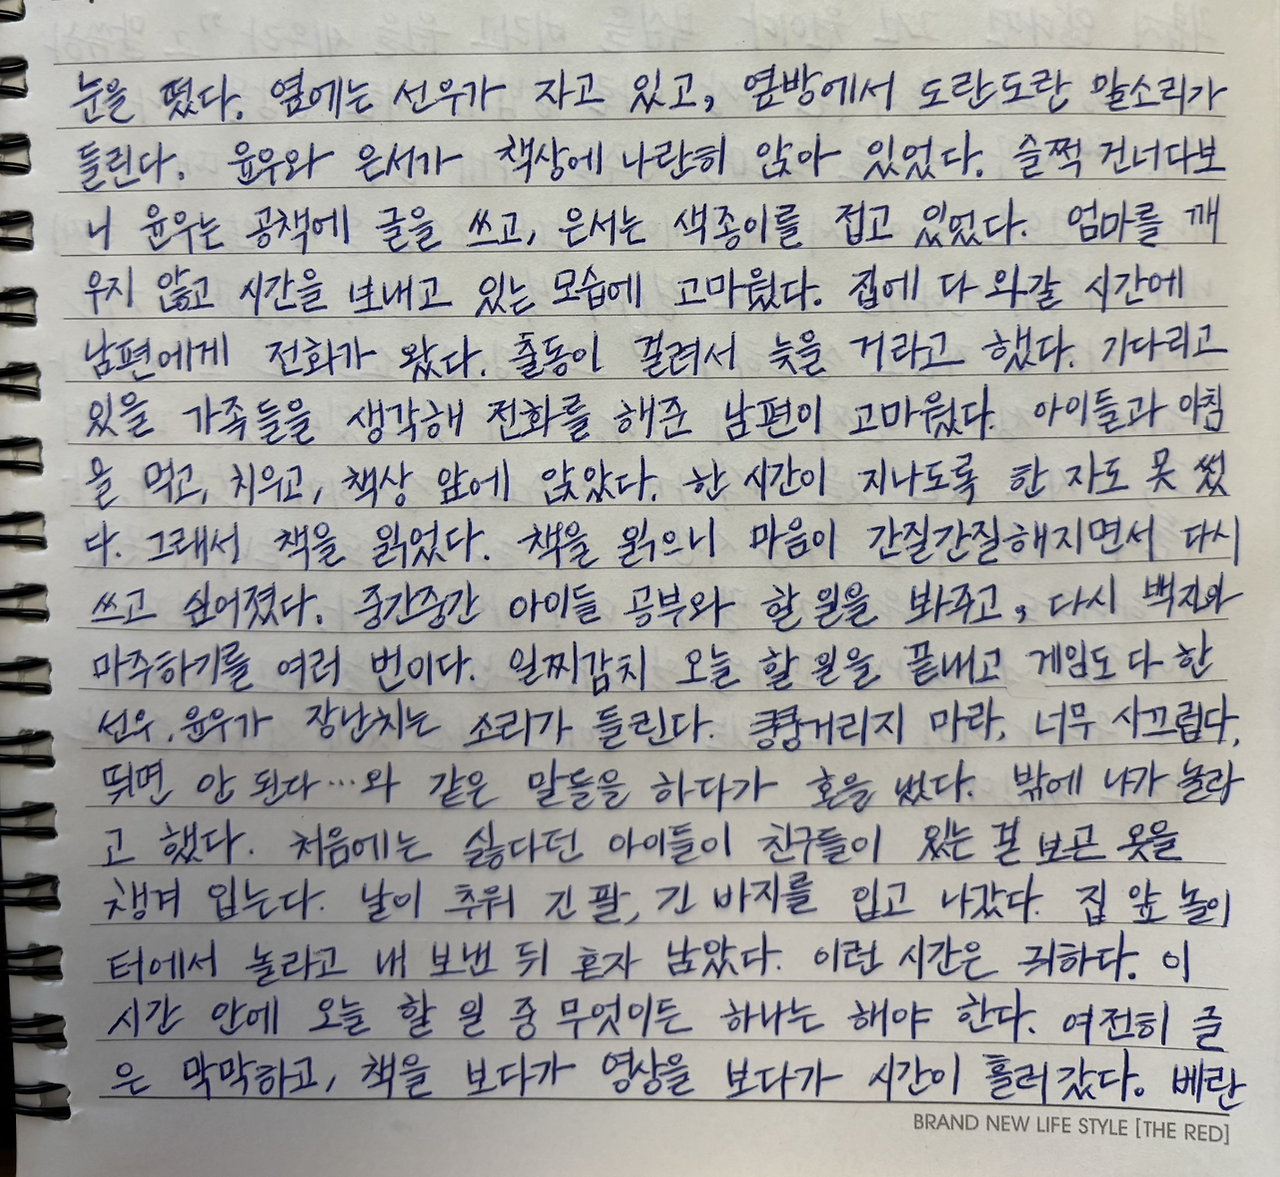 눈을 떴다. 옆에는 선우가 자고 있고, 옆방에서 도란도란 말소리가
들린다. 윤우와 은서가 책상에 나란히 앉아 있었다. 슬쩍 건너다보
니 윤우는 공책에 글을 쓰고, 은서는 색종이를 접고 있었다. 엄마를 깨
우지 않고 시간을 보내고 있는 모습에 고마웠다. 집에 다 와갈 시간에
남편에게 전화가 왔다. 출동이 걸려서 늦을 거라고 했다. 기다리고
있을 가족들을 생각해 전화를 해준 남편이 고마웠다. 아이들과 아침
을 먹고, 치우고, 책상 앞에 앉았다. 한 시간이 지나도록 한 자도 못 썼
다. 그래서 책을 읽었다. 책을 읽으니 마음이 간질간질해지면서 다시
쓰고 싶어졌다. 중간중간 아이들 공부와 할 일을 봐주고, 다시 백지와
마주하기를 여러 번이다. 일찌감치 오늘 할 일을 끝내고 게임도 다 한
선우, 윤우가 장난치는 소리가 들린다. 쿵쿵거리지 마라, 너무 시끄럽다,
뛰면 안 된다…와 같은 말들을 하다가 혼을 냈다. 밖에 나가 놀라
고 했다. 처음에는 싫다던 아이들이 친구들이 있는 걸 보곤 옷을
챙겨 입는다. 날이 추워 긴 팔, 긴 바지를 입고 나갔다. 집 앞 놀이
터에서 놀라고 내 보낸 뒤 혼자 남았다. 이런 시간은 귀하다. 이
시간 안에 오늘 할 일 중 무엇이든 하나는 해야 한다. 여전히 글
은 막막하고, 책을 보다가 영상을 보다가 시간이 흘러갔다. 베란
BRAND NEW LIFE STYLE [THE RED]